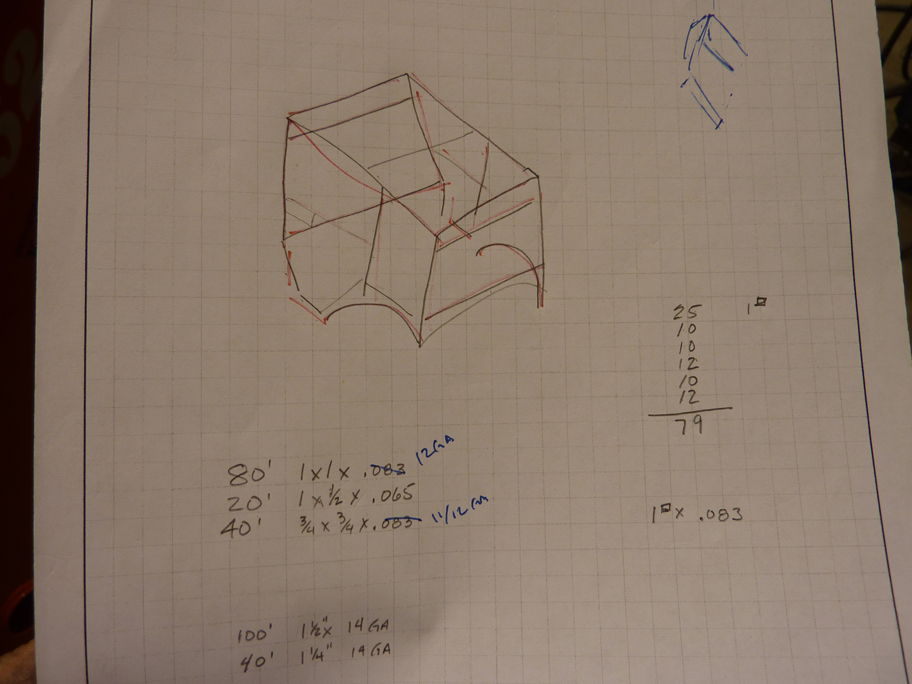 25 1□
10
10
12
10
12
79
80' 1x1x .083 12GA
20' 1 x ½ x .065
40' ¾ x ¾ x .083 11/12 GA
1□ x .083
100' 1½" x 14 GA
40' 1¼" 14 GA